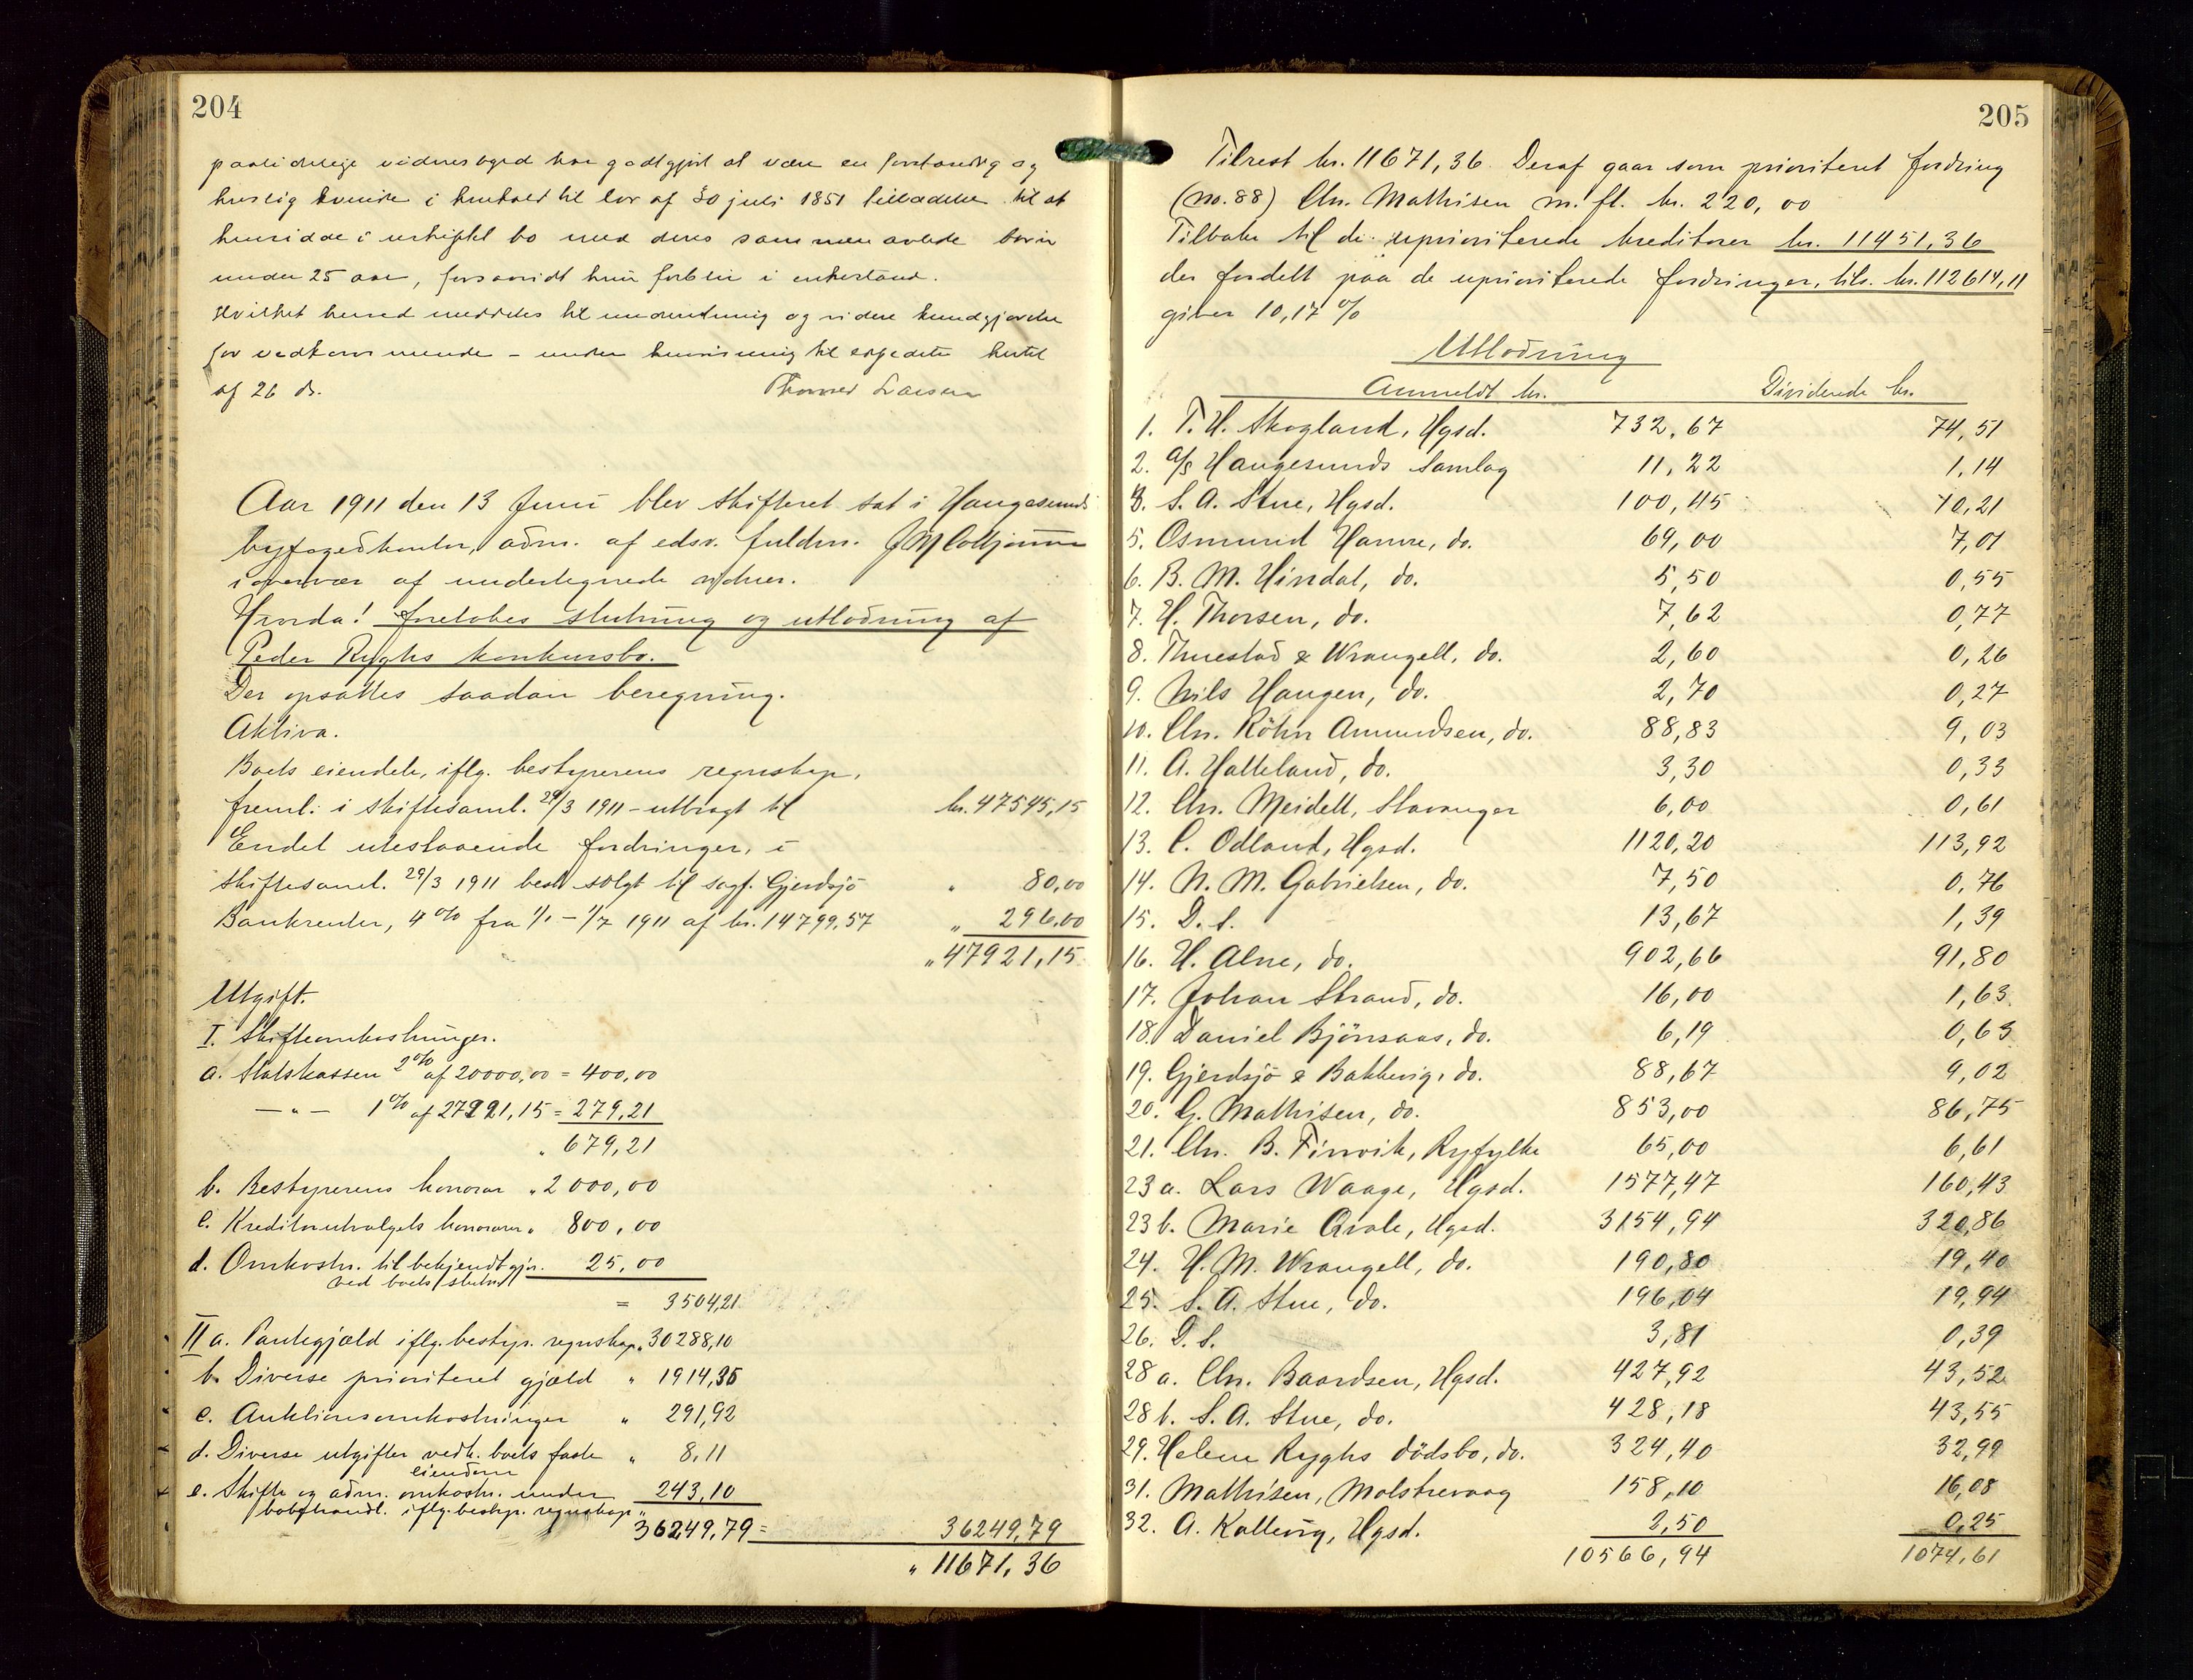 204
paalidelige vidnesbyrd har godtgjort at være en forstandig og
huslig kvinde i henhold til lov af 30 juli 1851 tilladelse til at
hensidde i uskiftet bo med deres sammen avlede børn
under 25 aar, forsaavidt hun forblir i enkestand.
Hvilket herved meddeles til underretning og videre kundgjørelse
for vedkommende – under henvisning til hertil
af 26 ds. Thomas Larsen
Aar 1911 den 13 Juni blev skifteret sat i Haugesunds
byfogedkontor, adm. af edsv. fuldm.
i overvær af undertegnede vidner.
Hvorda! foretokes slutning og utlodning af
Peder Ryghs konkursbo.
Der opsattes saadan beregning.
Aktiva.
Boets eiendele, iflg. bestyrerens regnskap,
freml. i skiftesaml. 29/3 1911 – utbragt til kr. 47545,15
Endel utestaaende fordringer, i
skiftesaml. 29/3 1911 besl. solgt til sagf. Gjerdsjö " 80,00
Bankrenter, 4% fra 1/1 – 1/7 1911 af kr. 14799,57 " 296,00
" 47921,15
Utgift.
I. Skifteomkostninger.
a. Statskassen 2% af 20000,00 = 400,00
— " — 1% af 27921,15 = 279,21
" 679,21
b. Bestyrerens honorar " 2000,00
c. Kreditorutvalgets honorarer " 800,00
d. Omkostn. til bekjendtgjör. 25,00
ved boets slutn.
= 3504,21
II a. Pantegjæld iflg. bestyr. regnskap " 30288,10
b. Diverse prioriteret gjæld " 1914,35
c. Auktionsomkostninger " 291,92
d. Diverse utgifter vedk. boets faste " 8,11
eiendom
e. Skifte og adm. omkostn. under 243,10
bobehandl. iflg. bestyr. regnskap "
36249,79 = 36249,79
" 11671,36
205
Tilrest kr. 11671,36. Deraf gaar som prioriteret fordring
(no. 88) Chr. Mathisen m. fl. kr. 220,00
Tilbake til de uprioriterede kreditorer kr. 11451,36
der fordelt paa de uprioriterede fordringer, tils. kr. 112614,11
giver 10,17 %
Utlodning
Anmeldt kr. Dividende kr.
1. T. H. Skogland, Hgsd. 732,67 74,51
2. A/S Haugesunds Samlag 11,22 1,14
3. S. A. Stue, Hgsd. 100,45 10,21
5. Osmund Hamre, do. 69,00 7,01
6. B. M. Hindal, do. 5,50 0,55
7. H. Thorsen, do. 7,62 0,77
8. Thuestad & Wrangell, do. 2,60 0,26
9. Nils Haugen, do. 2,70 0,27
10. Chr. Röhn Amundsen, do. 88,83 9,03
11. A. Halleland, do. 3,30 0,33
12. Chr. Meidell, Stavanger 6,00 0,61
13. C. Odland, Hgsd. 1120,20 113,92
14. N. M. Gabrielsen, do. 7,50 0,76
15. D. S. 13,67 1,39
16. H. Alne, do. 902,66 91,80
17. Johan Strand, do. 16,00 1,63
18. Daniel Bjönsaas, do. 6,19 0,63
19. Gjerdsjö & Bakkevig, do. 88,67 9,02
20. G. Mathisen, do. 853,00 86,75
21. Chr. B. Finvik, Ryfylke 65,00 6,61
23 a. Lars Waage, Hgsd. 1577,47 160,43
23 b. Marie Qvale, Hgsd. 3154,94 320,86
24. H. M. Wrangell, do. 190,80 19,40
25. S. A. Stue, do. 196,04 19,94
26. D. S. 3,81 0,39
28 a. Chr. Baardsen, Hgsd. 427,92 43,52
28 b. S. A. Stue, do. 428,18 43,55
29. Helene Ryghs dödsbo, do. 324,40 32,99
31. Mathisen, Molstrevaag 158,10 16,08
32. A. Kallevig, Hgsd. 2,50 0,25
10566,94 1074,61